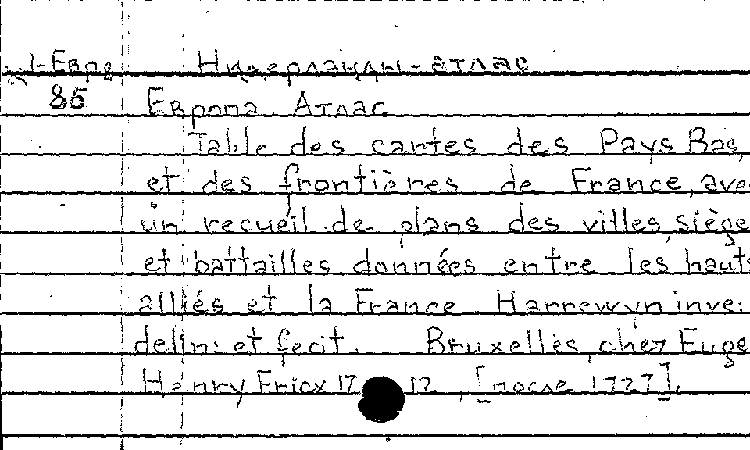 1-Евро Нидерланды-атлас
85 Европа Атлас
Table des cartes des Pays Bas,
et des frontières de France, ave
un recueil de plans des villes, siège
et battailles données entre les hauts
alliés et la France Harrewyn inve:
delin: et fecit. Bruxelles, chez Euge
Henry Fricx 17 12, [после 1727].